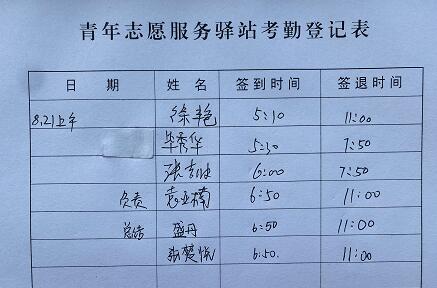 青年志愿服务驿站考勤登记表
日 期 姓 名 签到时间 签退时间
8.21上午 徐艳 5:10 11:00
毕秀华 5:30 7:50
张 6:00 7:50
负责 袁业楠 6:50 11:00
总结 盛丹 6:50 11:00
张楚悦 6:50. 11:00